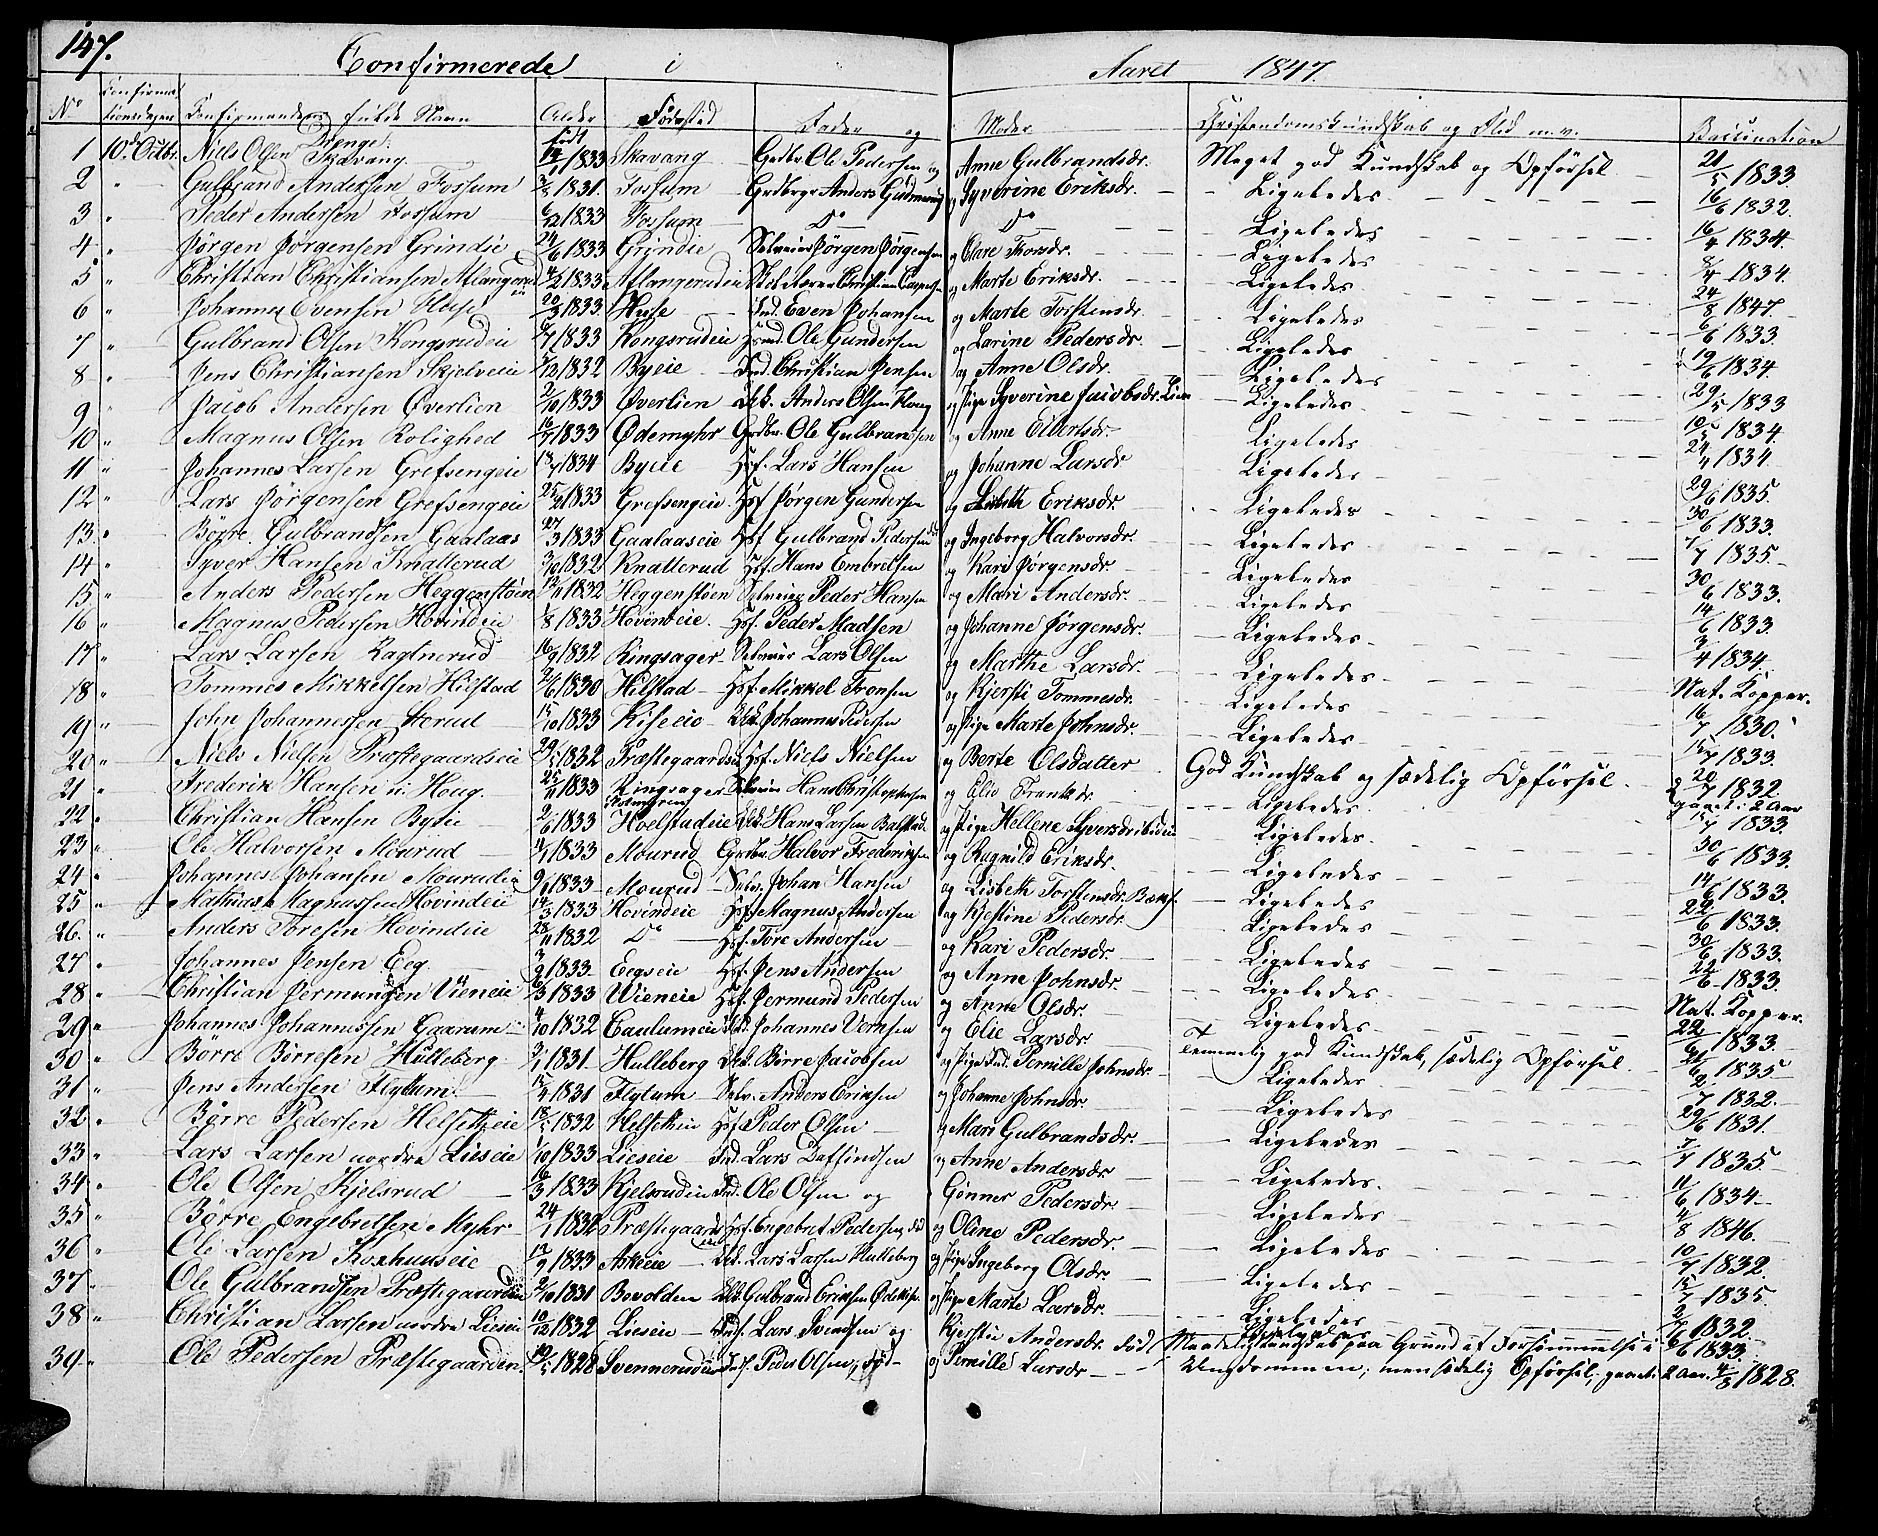 147.
Confirmerede i Aaret 1847.
No Confirmationsdagen Confirmandens fulde Navn Alder Fødested Fader og Moder Christendomskundskab og Flid m.v. Vaccination
Drenge. født
1 10de Octbr. Niels Olsen Skavang 1833 Skavang Grdbr. Ole Pedersen og Anne Gulbrandsdr. Meget god Kundskab og Opførsel 21/5 1833
2 " Gulbrand Andersen Fossum 1831. Fossum Grdbrgr Anders Gudmund og Syverine Eriksdr. Ligeledes 16/6 1832.
3 " Peder Andersen Fossum 6/12 1833 Fossum Do Do Ligeledes 16/4 1834.
4 " Jørgen Jørgensen Grindie 24/6 1833 Grindie Selveier Jørgen Jørgensen og Clare Thorsdr. Ligeledes 8/4 1834
5 " Christian Christiansen Aslangerud 4/2 1833 Aslangerudeie Christian og Marte Eriksdr. Ligeledes 24/8 1847
6 " Johannes Evensen Huse 20/3 1833. Huse Ind. Even Johansen og Marte Torstensdr. Ligeledes 6/6 1833.
7 " Gulbrand Olsen Kongsrudeie 1833 Kongsrudeie Ole Gundersen og Larine Pedersdr. Ligeledes 19/6 1834.
8 " Jens Christiansen Skjelveie 1832 Byeie Ind. Christian Jensen og Anne Olsdr. Ligeledes 29/5 1833
9 " Jacob Andersen Øverlien 2/10 1833 Øverlien Anders Olsen og Pige Syverine Jacobsdr. Lien Ligeledes 1834.
10 " Magnus Olsen Rolighed 16/7 1833 Ødemyhr Grdbr. Ole Gulbransen og Anne Elbertsdr. Ligeledes 24/4 1834.
11 " Johannes Larsen Grefsengeie 1834 Byeie Hsf. Lars Hansen og Johanne Larsdr. Ligeledes 29/6 1835.
12 " Lars Jørgensen Grefsengeie 25/2 1833 Grefsengeie Hsf Jørgen Gundersen og Lisbeth Eriksdr. Ligeledes 30/6 1833.
13 " Børre Gulbrandsen Gaalaas 27/3 1833 Gaalaaseie Hsf Gulbrand Pedersen og Ingeborg Halvorsdr. Ligeledes 7/7 1835.
14 " Syver Hansen Knatterud 3/10 1832 Knatterud Hsf. Hans Embretsen og Kari Jørgensdr. Ligeledes 30/6 1833.
15 " Anders Pedersen Heggenstøen 1832 Heggenstøen Selveier Peder Hansen og Mari Andersdr. Ligeledes 14/6 1833.
16 " Magnus Pedersen Hovindeie 1/8 1833 Hovindeie. Hsf. Peder Madsen og Johanne Jørgensdr. Ligeledes 3/4 1834.
17 " Lars Larsen Ragtnerud 16/9 1832 Ringsager Selveier Lars Olsen og Marthe Larsdr. Ligeledes Nat. Kopper.
18 " Tommes Mikkelsen Hilstad 1830 Hilstad Hsf. Mikkel Tronsen og Kjersti Tommesdr. Ligeledes 16/7 1830.
19 " John Johannessen Storud 15/10 1833 Kiseeie Johannes Pedersen og Pige Marte Johnsdr. Ligeledes 1833.
20 " Niels Nielsen Præstegaardseie 1832 Præstegaardseie Hsf. Niels Nielsen og Berte Olsdatter God Kundskab og sædelig Opførsel. 20/7 1832.
21 " Frederik Hansen Houg. 1833 Ringsager Selveier Hans Christophersen og Elie Frantsdr. Ligeledes gaaet i 2 Aar 1833.
22 " Christian Hansen Byeie 2/6 1833 Hoelstadeie Hans Larsen Balstad og Pige Hellene Syversdr. ibidem Ligeledes 30/6 1833.
23 " Ole Halvorsen Mourud 1833 Mourud Grdbr. Halvor Frederiksen og Ragnild Eriksdr. Ligeledes 14/6 1833.
24 " Johannes Johansen Mouradeie 1833 Mourud Selv. Johan Hansen og Lisbeth Torstensdr. Ligeledes 22/6 1833.
25 " Mathias Magnussen Hovindeie 14/3 1833 Hovindeie Hsf. Magnus Andersen og Kjestine Pedersdr. Ligeledes 30/6 1833.
26. " Anders Toresen Hovindeie 28/11 1832 Do Hsf. Tore Andersen og Kari Pedersdr. Ligeledes 22/6 1833.
27 " Johannes Jensen Eeg. 1833 Eegseie Hsf. Jens Andersen og Anne Johnsdr. Ligeledes Nat. Kopper.
28 " Christian Jermundsen Vieneie 1833 Wieneie Hsf. Jermund Pedersen og Anne Olsdr. Ligeledes 22/6 1833.
29 " Johannes Johannessen Gaarum 4/10 1832 Johannes og Elie Larsdr. Temmelig god Kundskab, sædelig Opførsel. 1835
30 " Børre Børresen Hulleberg 3/1 1831. Hulleberg Børre Jacobsen og Pige Pernille Johnsdr. Ligeledes 2/7 1832.
31 " Jens Andersen Flytum. 1831 Flytum Selv. Anders Eriksen og Johanne Johnsdr. Ligeledes 29/6 1831.
32 " Børre Pedersen Helsetheie 1832 Helsetheie Hsf Peder Olsen og Mari Gulbrandsdr. Ligeledes 1835.
33 " Lars Larsen nordre Lieseie 1/10 1833 Lieseie Ind. Lars Daffindsen og Anne Andersdr. Ligeledes 11/6 1834
34 " Ole Olsen Kjelsrud 16/3 1833 Kjelsrudeie Ind. Ole Olsen og Gønner Pedersdr. Ligeledes 4/8 1846.
35 " Børre Engebretsen Myhr 24/1 1832 Præstegaards Hsf. Engebret Pedersen og Oline Pedersdr. Ligeledes 10/7 1832.
36 " Ole Larsen Koxhuuseie 1833 Askeeie Lars Larsen Hulleberg og Pige Ingeborg Olsdr. Ligeledes 1835.
37 " Ole Gulbrandsen Præstegaarden 1831 Bovolden Gulbrand Eriksen og Pige Marte Larsdr. Ligeledes 1832
38 " Christian Larsen nordre Lieseie 10/12 1832 Lieseie Lars Svendsen og Kjerstie Andersdr. Ligeledes 1833.
39 " Ole Pedersen Præstegaarden. 1828 Svennerudeie Peder Olsen, død og Pernille Larsdr. Maadelig Kundskab paa Grund af Forsømmelse i Ungdommen, men sædelig Opførsel, gaaet i 2 Aar. 4/8 1828.